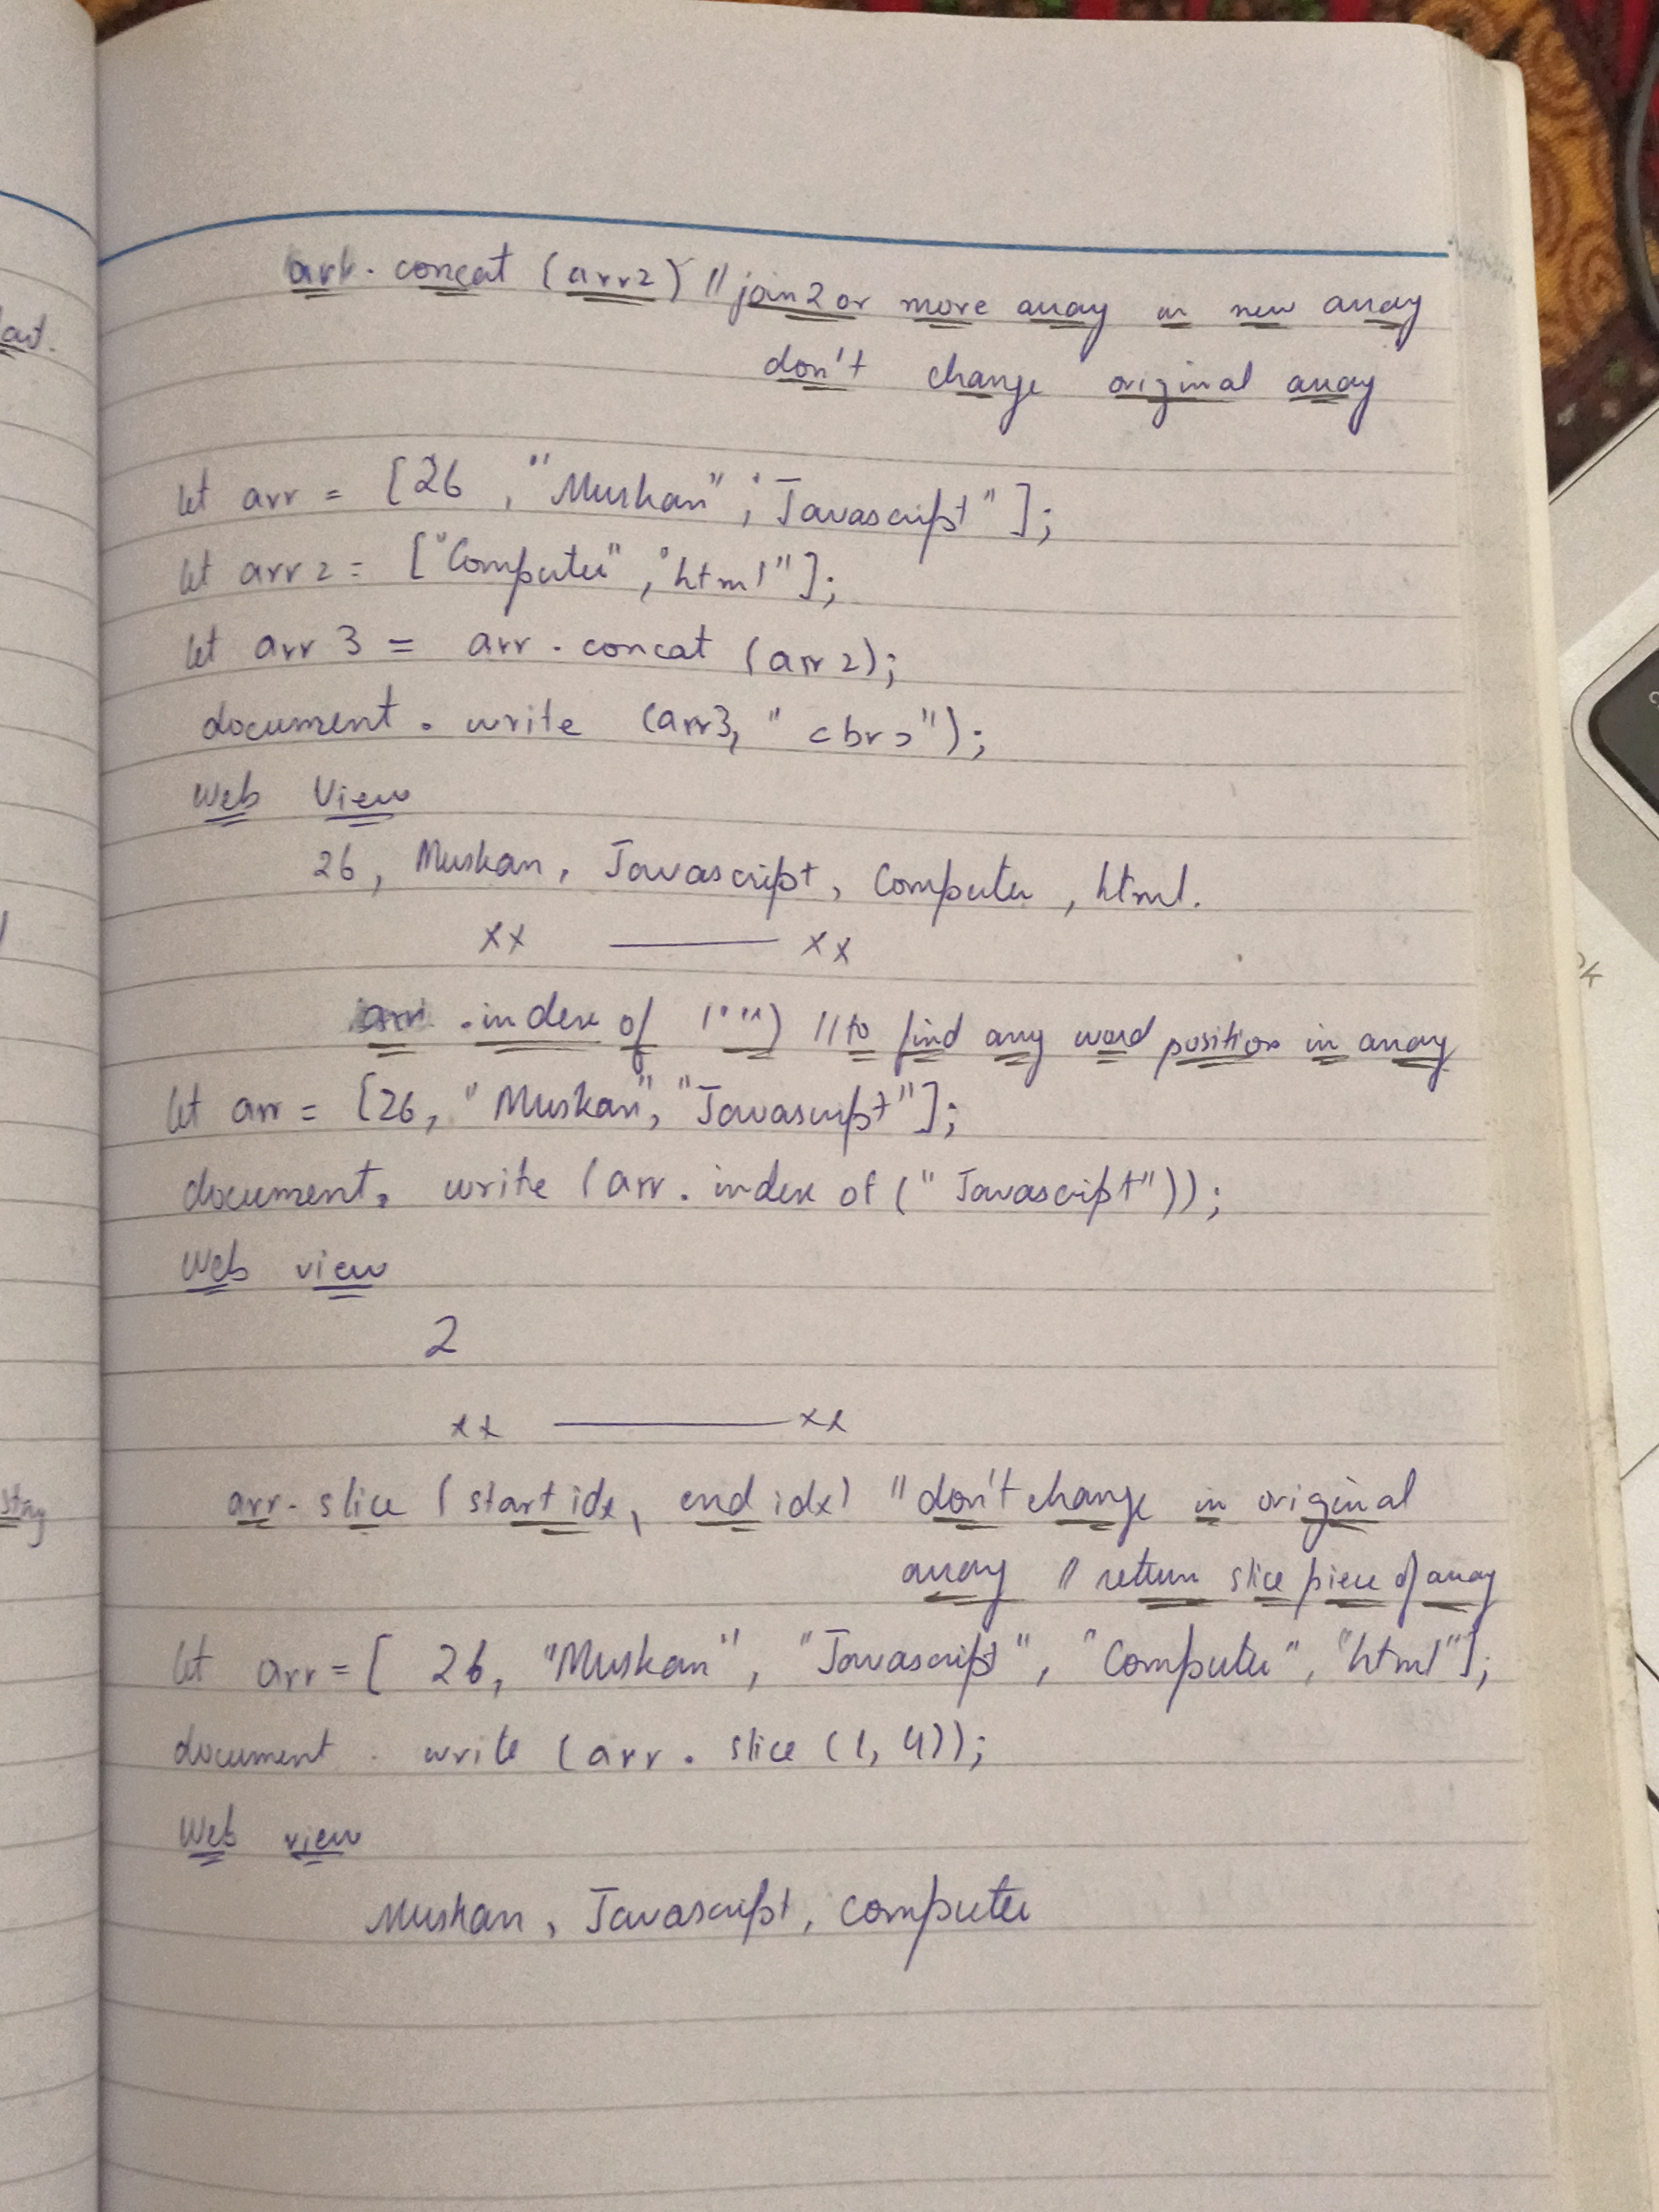 arr. concat (arr2) // join 2 or more array in new array
don't change original array
let arr = [26, "Muskan", "Javascript"];
let arr2 = ["Computer", "html"];
let arr3 = arr. concat (arr2);
document. write (arr3, "<br>");
Web View
26, Muskan, Javascript, Computer, html.
xx ——— xx
arr .index of ("") // to find any word position in array
let arr = [26, "Muskan", "Javascript"];
document. write (arr. index of ("Javascript"));
Web view
2
xx ——— xx
arr. slice (start idx, end idx) // don't change in original
array // return slice piece of array
let arr = [ 26, "Muskan", "Javascript", "Computer", "html"];
document. write (arr. slice (1, 4));
Web view
Muskan, Javascript, Computer